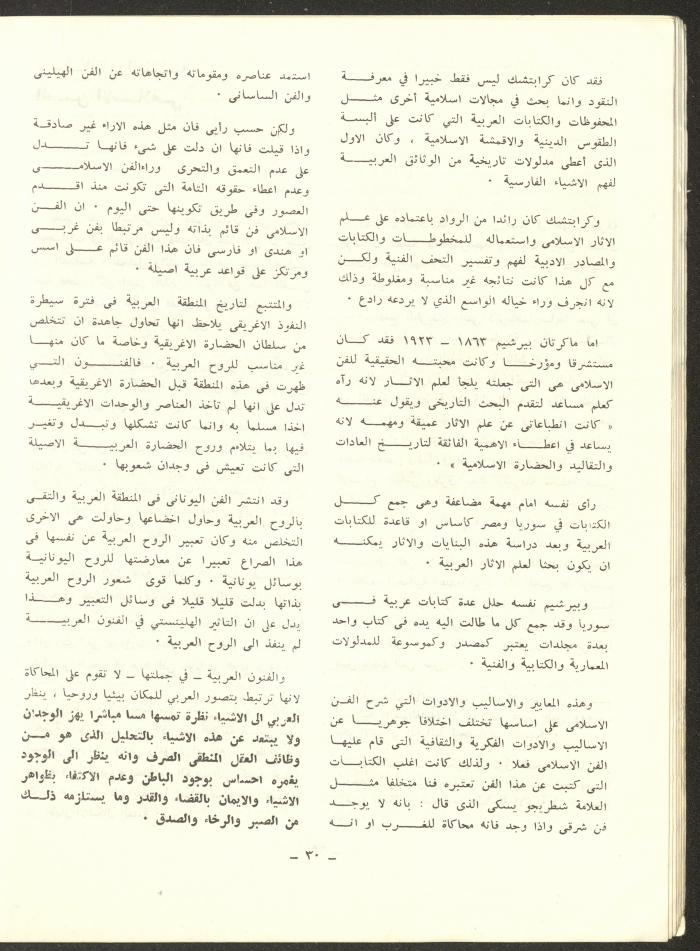 فقد كان كرابتشك ليس فقط خبيرا في معرفة
النقود وانما بحث في مجالات اسلامية أخرى مثل
المحفوظات والكتابات العربية التي كانت على ألبسة
الطقوس الدينية والاقمشة الاسلامية ، وكان الاول
الذى أعطى مدلولات تاريخية من الوثائق العربية
لفهم الاشياء الفارسية .
وكرابتشك كان رائدا من الرواد باعتماده على علم
الاثار الاسلامى واستعماله للمخطوطات والكتابات
والمصادر الادبية لفهم وتفسير التحف الفنية ولكن
مع كل هذا كانت نتائجه غير مناسبة ومغلوطة وذلك
لانه انجرف وراء خياله الواسع الذي لا يردعه رادع .
اما ماكرتان بيرشيم ١٨٦٣ – ١٩٢٣ فقد كان
مستشرقا ومؤرخا وكانت محبته الحقيقية للفن
الاسلامى هى التى جعلته يلجأ لعلم الاثار لانه رآه
كعلم مساعد لتقدم البحث التاريخى ويقول عنه
« كانت انطباعاتى عن علم الاثار عميقة ومهمه لانه
يساعد في اعطاء الاهمية الفائقة لتاريخ العادات
والتقاليد والحضارة الاسلامية » .
رأى نفسه امام مهمة مضاعفة وهى جمع كل
الكتابات في سوريا ومصر كاساس او قاعدة للكتابات
العربية وبعد دراسة هذه البنايات والاثار يمكنه
ان يكون بحثا لعلم الاثار العربية .
وبيرشيم نفسه حلل عدة كتابات عربية فى
سوريا وقد جمع كل ما طالت اليه يده فى كتاب واحد
بعدة مجلدات يعتبر كمصدر وكموسوعة للمدلولات
المعمارية والكتابية والفنية .
وهذه المعايير والاساليب والادوات التي شرح الفن
الاسلامى على اساسها تختلف اختلافا جوهريا عن
الاساليب والادوات الفكرية والثقافية التى قام عليها
الفن الاسلامى فعلا . ولذلك كانت اغلب الكتابات
التى كتبت عن هذا الفن تعتبره فنا متخلفا مثل
العلامة شطريجو يسكى الذى قال : بانه لا يوجد
فن شرقى واذا وجد فانه محاكاة للغرب او انه
استمد عناصره ومقوماته واتجاهاته عن الفن الهيلينى
والفن الساسانى .
ولكن حسب رأيى فان مثل هذه الاراء غير صادقة
واذا قيلت فانها ان دلت على شىء فانها تدل
على عدم التعمق والتحرى وراءالفن الاسلامى
وعدم اعطاء حقوقه التامة التى تكونت منذ اقدم
العصور وفى طريق تكوينها حتى اليوم . ان الفن
الاسلامى فن قائم بذاته وليس مرتبطا بفن غربى
او هندى او فارسى فان هذا الفن قائم على اسس
ومرتكز على قواعد عربية اصيلة .
والمتتبع لتاريخ المنطقة العربية فى فترة سيطرة
النفوذ الاغريقى يلاحظ انها تحاول جاهدة ان تتخلص
من سلطان الحضارة الاغريقية وخاصة ما كان منها
غير مناسب للروح العربية . فالفنون التى
ظهرت فى هذه المنطقة قبل الحضارة الاغريقية وبعدها
تدل على انها لم تأخذ العناصر والوحدات الاغريقية
اخذا مسلما به وانما كانت تشكلها وتبدل وتغير
فيها بما يتلاءم وروح الحضارة العربية الاصيلة
التى كانت تعيش فى وجدان شعوبها .
وقد انتشر الفن اليونانى فى المنطقة العربية والتقى
بالروح العربية وحاول اخضاعها وحاولت هى الاخرى
التخلص منه وكان تعبير الروح العربية عن نفسها فى
هذا الصراع تعبيرا عن معارضتها للروح اليونانية
بوسائل يونانية . وكلما قوى شعور الروح العربية
بذاتها بدلت قليلا قليلا فى وسائل التعبير وهذا
يدل على ان التاثير الهلينستي في الفنون العربية
لم ينفذ الى الروح العربية .
والفنون العربية – في جملتها – لا تقوم على المحاكاة
لانها ترتبط بتصور العربي للمكان بيئيا وروحيا ، ينظر
العربي الى الاشياء نظرة تمسها مسا مباشرا يهز الوجدان
ولا يبتعد عن هذه الاشياء بالتحليل الذى هو من
وظائف العقل المنطقى الصرف وانه ينظر الى الوجود
يغمره احساس بوجود الباطن وعدم الاكتفاء بظواهر
الاشياء والايمان بالقضاء والقدر وما يستلزمه ذلك
من الصبر والرخاء والصدق .
– ٣٠ –